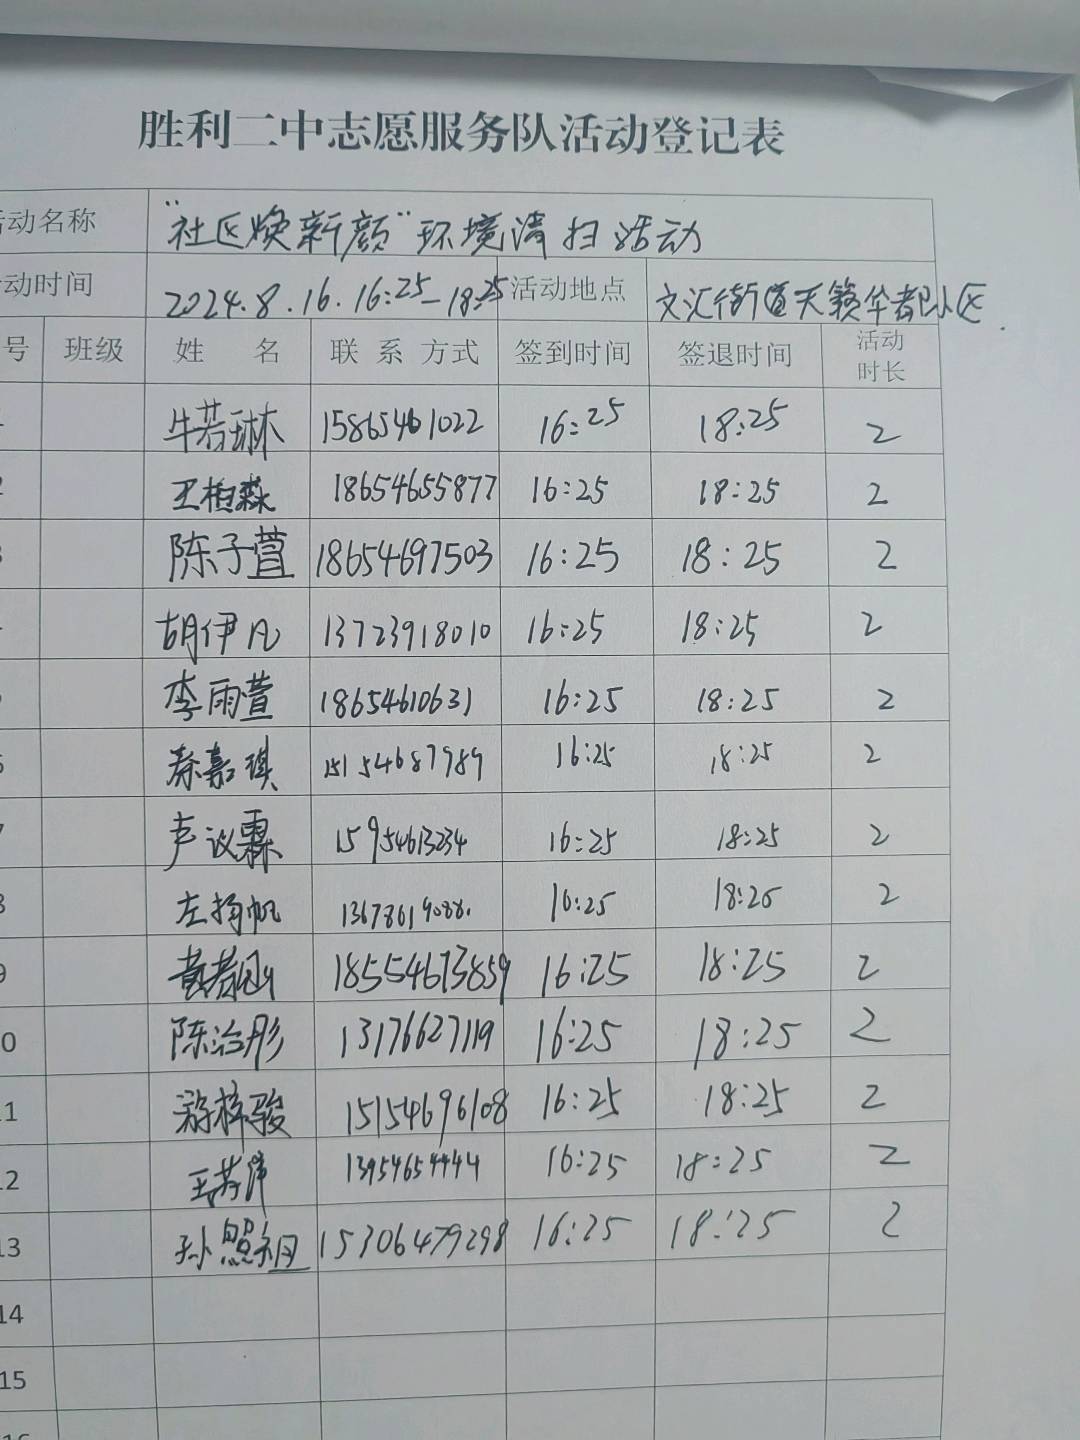 胜利二中志愿服务队活动登记表
活动名称 “社区焕新颜”环境清扫活动
活动时间 2024.8.16.16:25-18:25 活动地点 文汇街道天籁华都小区
号 班级 姓名 联系方式 签到时间 签退时间 活动时长
牛若琳 15865461022 16:25 18:25 2
2 王柏森 18654655877 16:25 18:25 2
3 陈子萱 18654697503 16:25 18:25 2
胡伊凡 13723918010 16:25 18:25 2
李雨萱 18654610631 16:25 18:25 2
秦嘉琪 15154687989 16:25 18:25 2
7 卢议霖 15954613234 16:25 18:25 2
8 左扬帆 13678619088. 16:25 18:25 2
9 黄 18554673859 16:25 18:25 2
10 陈治彤 13176627119 16:25 18:25 2
11 游梓骏 15154696108 16:25 18:25 2
12 王 13954654444 16:25 18:25 2
13 孙照祖 15306479298 16:25 18:25 2
14
15